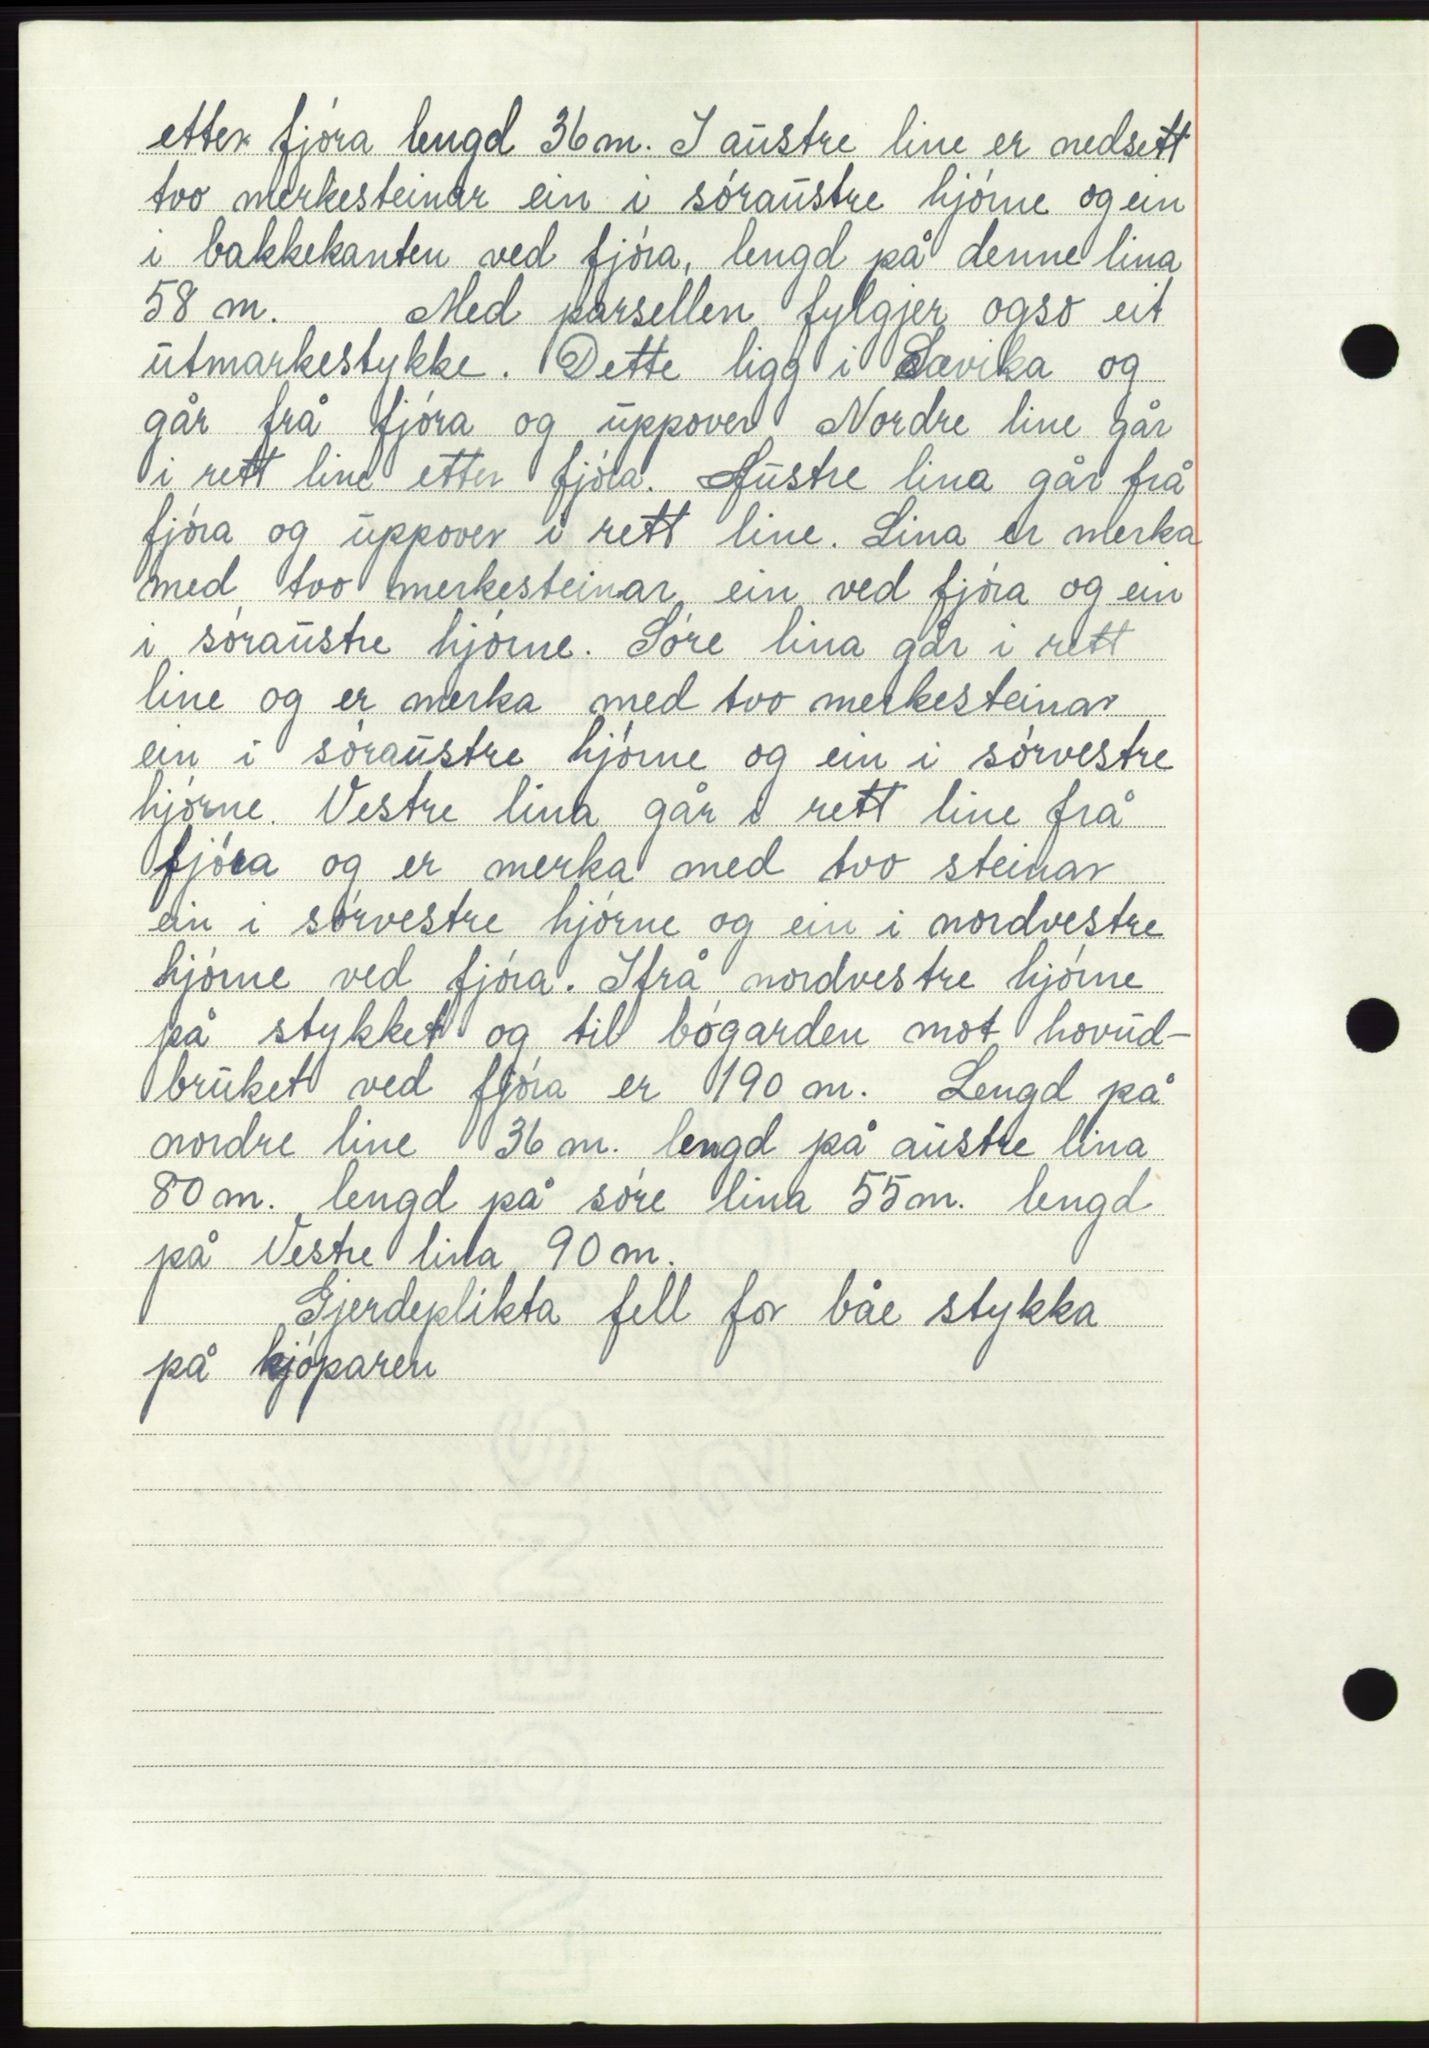 etter fjóra lengd 36 m. I austre line er nedsett
tvo merkesteinar ein i sóraustre hjórne og ein
i bakkekanten ved fjóra, lengd på denne lina
58 m. Med parsellen fylgjer også eit
utmarkestykke. Dette ligg i Sævika og
går frå fjóra og uppover Nordre line går
i rett line etter fjóra. Austre lina går frå
fjóra og uppover i rett line. Lina er merka
med tvo merkesteinar ein ved fjóra og ein
i sóraustre hjórne. Sóre lina går i rett
line og er merka med tvo merkesteinar
ein i sóraustre hjórne og ein i sórvestre
hjórne. Vestre lina går i rett line frå
fjóra og er merka med tvo steinar
ein i sórvestre hjórne og ein i nordvestre
hjórne ved fjóra. Ifrå nordvestre hjórne
på stykket og til bógarden mot hovud-
bruket ved fjóra er 190 m. Lengd på
nordre line 36 m. lengd på austre lina
80 m. lengd på sóre lina 55 m. lengd
på Vestre lina 90 m.
Gjerdeplikta fell for båe stykka
på kjóparen